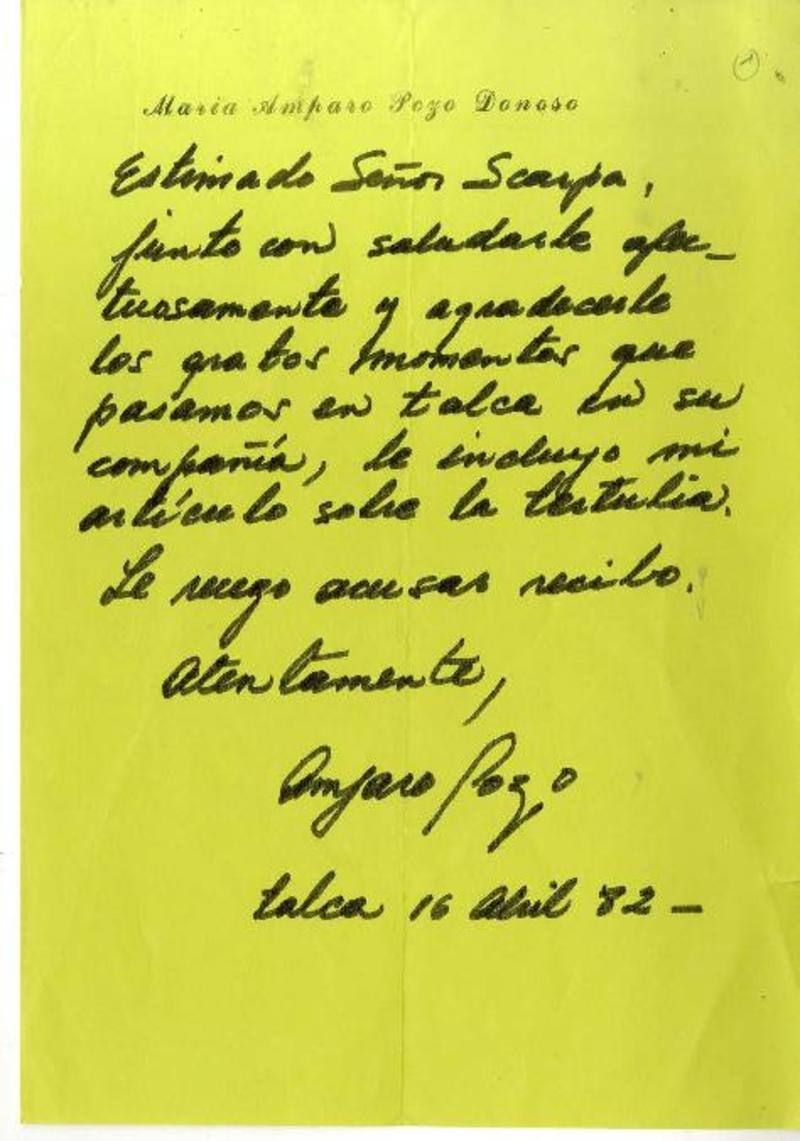 1
Maria Amparo Pozo Donoso
Estimado Señor Scarpa,
junto con saludarle afec-
tuosamente y agradecerle
los gratos momentos que
pasamos en talca en su
compañía, le incluyo mi
artículo sobre la tertulia.
Le ruego acusar recibo.
Atentamente,
Amparo Pozo
talca 16 Abril 82 –